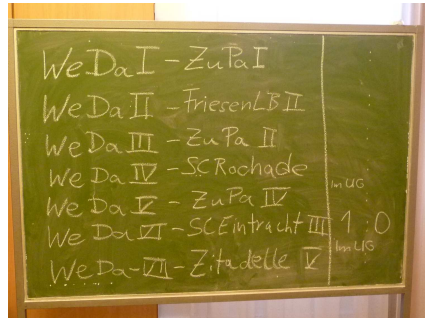 WeDa I - ZuPa I
WeDa II - FriesenLB II
WeDa III - ZuPa II
WeDa IV - SCRochade
im UG
WeDa V - ZuPa IV
WeDa VI - SCEintracht III 1 : 0
im UG
WeDa-VII - Zitadelle V